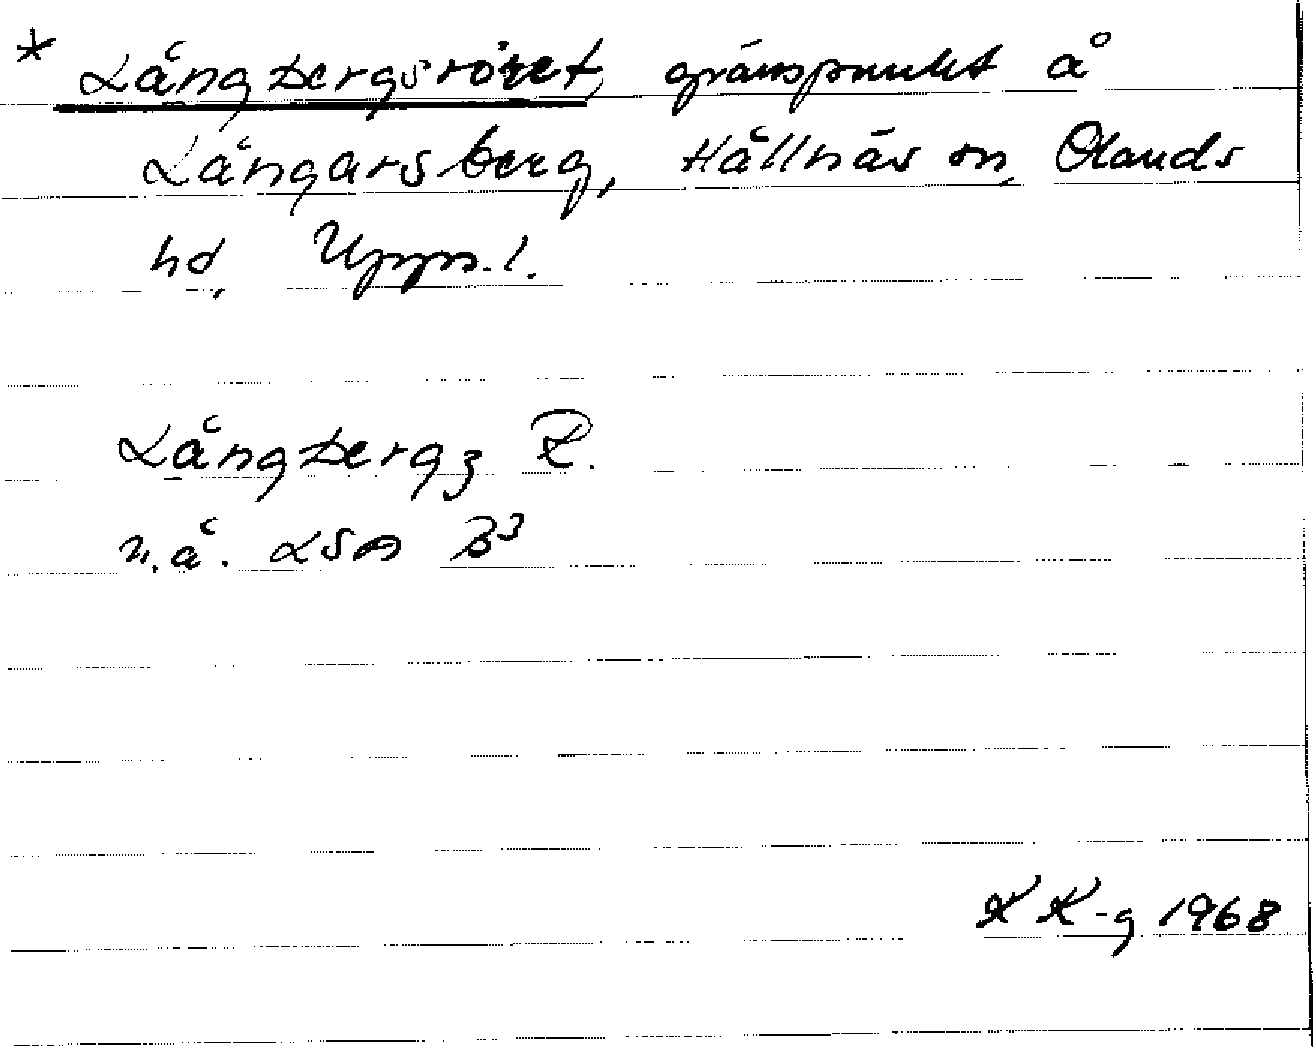 * Långbergsröret, gränspunkt å
Långarsberg, Hållnäs sn, Olands
hd, Upps. l.
Långbergz R.
u.å. LSA B3
KK-g 1968